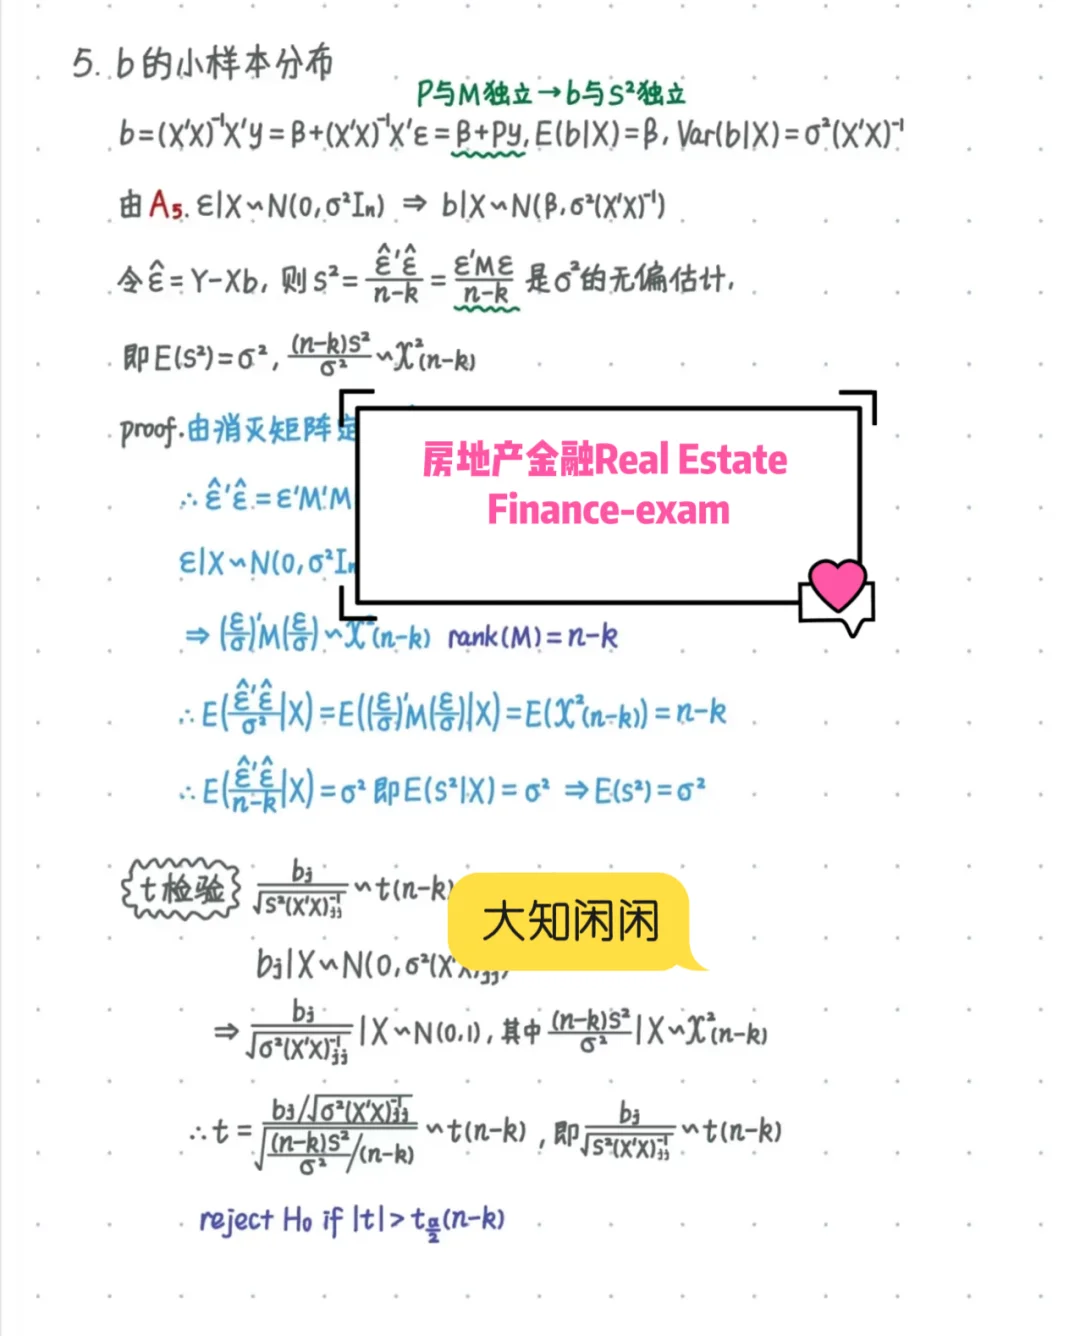 5. b的小样本分布
P与M独立→b与S²独立
b=(X'X)⁻¹X'y=β+(X'X)⁻¹X'ε=β+Py, E(b|X)=β, Var(b|X)=σ²(X'X)⁻¹
由A₅. ε|X∽N(0,σ²Iₙ) ⇒ b|X∽N(β,σ²(X'X)⁻¹)
令ε̂=Y-Xb, 则S²=ε̂'ε̂/(n-k)=ε'Mε/(n-k) 是σ²的无偏估计,
即E(S²)=σ², (n-k)S²/σ²∽χ²(n-k)
proof.由消灭矩阵定
房地产金融Real Estate
Finance-exam
∴ε̂'ε̂=ε'M'M
ε|X∽N(0,σ²Iₙ
⇒(ε/σ)'M(ε/σ)∽χ²(n-k) rank(M)=n-k
∴E(ε̂'ε̂/σ²|X)=E((ε/σ)'M(ε/σ)|X)=E(χ²(n-k))=n-k
∴E(ε̂'ε̂/(n-k)|X)=σ² 即E(S²|X)=σ² ⇒E(S²)=σ²
t检验 bj/√(S²(X'X)⁻¹jj)∽t(n-k)
大知闲闲
bj|X∽N(0,σ²(X'X)⁻¹jj)
⇒bj/√(σ²(X'X)⁻¹jj)|X∽N(0,1), 其中(n-k)S²/σ²|X∽χ²(n-k)
∴t=(bj/√(σ²(X'X)⁻¹jj))/√((n-k)S²/σ²/(n-k))∽t(n-k), 即bj/√(S²(X'X)⁻¹jj)∽t(n-k)
reject H₀ if |t|>t_{α/2}(n-k)